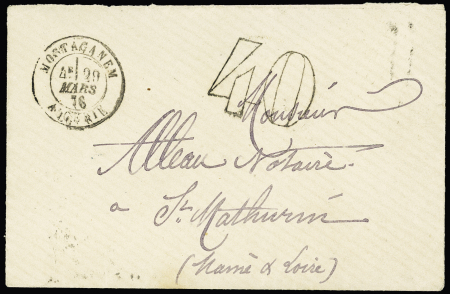 MOSTAGANEM
4E 29
MARS
76
ALGÉRIE
40
Monsieur
Alleau Notaire
a St. Mathurin
(Maine & Loire)